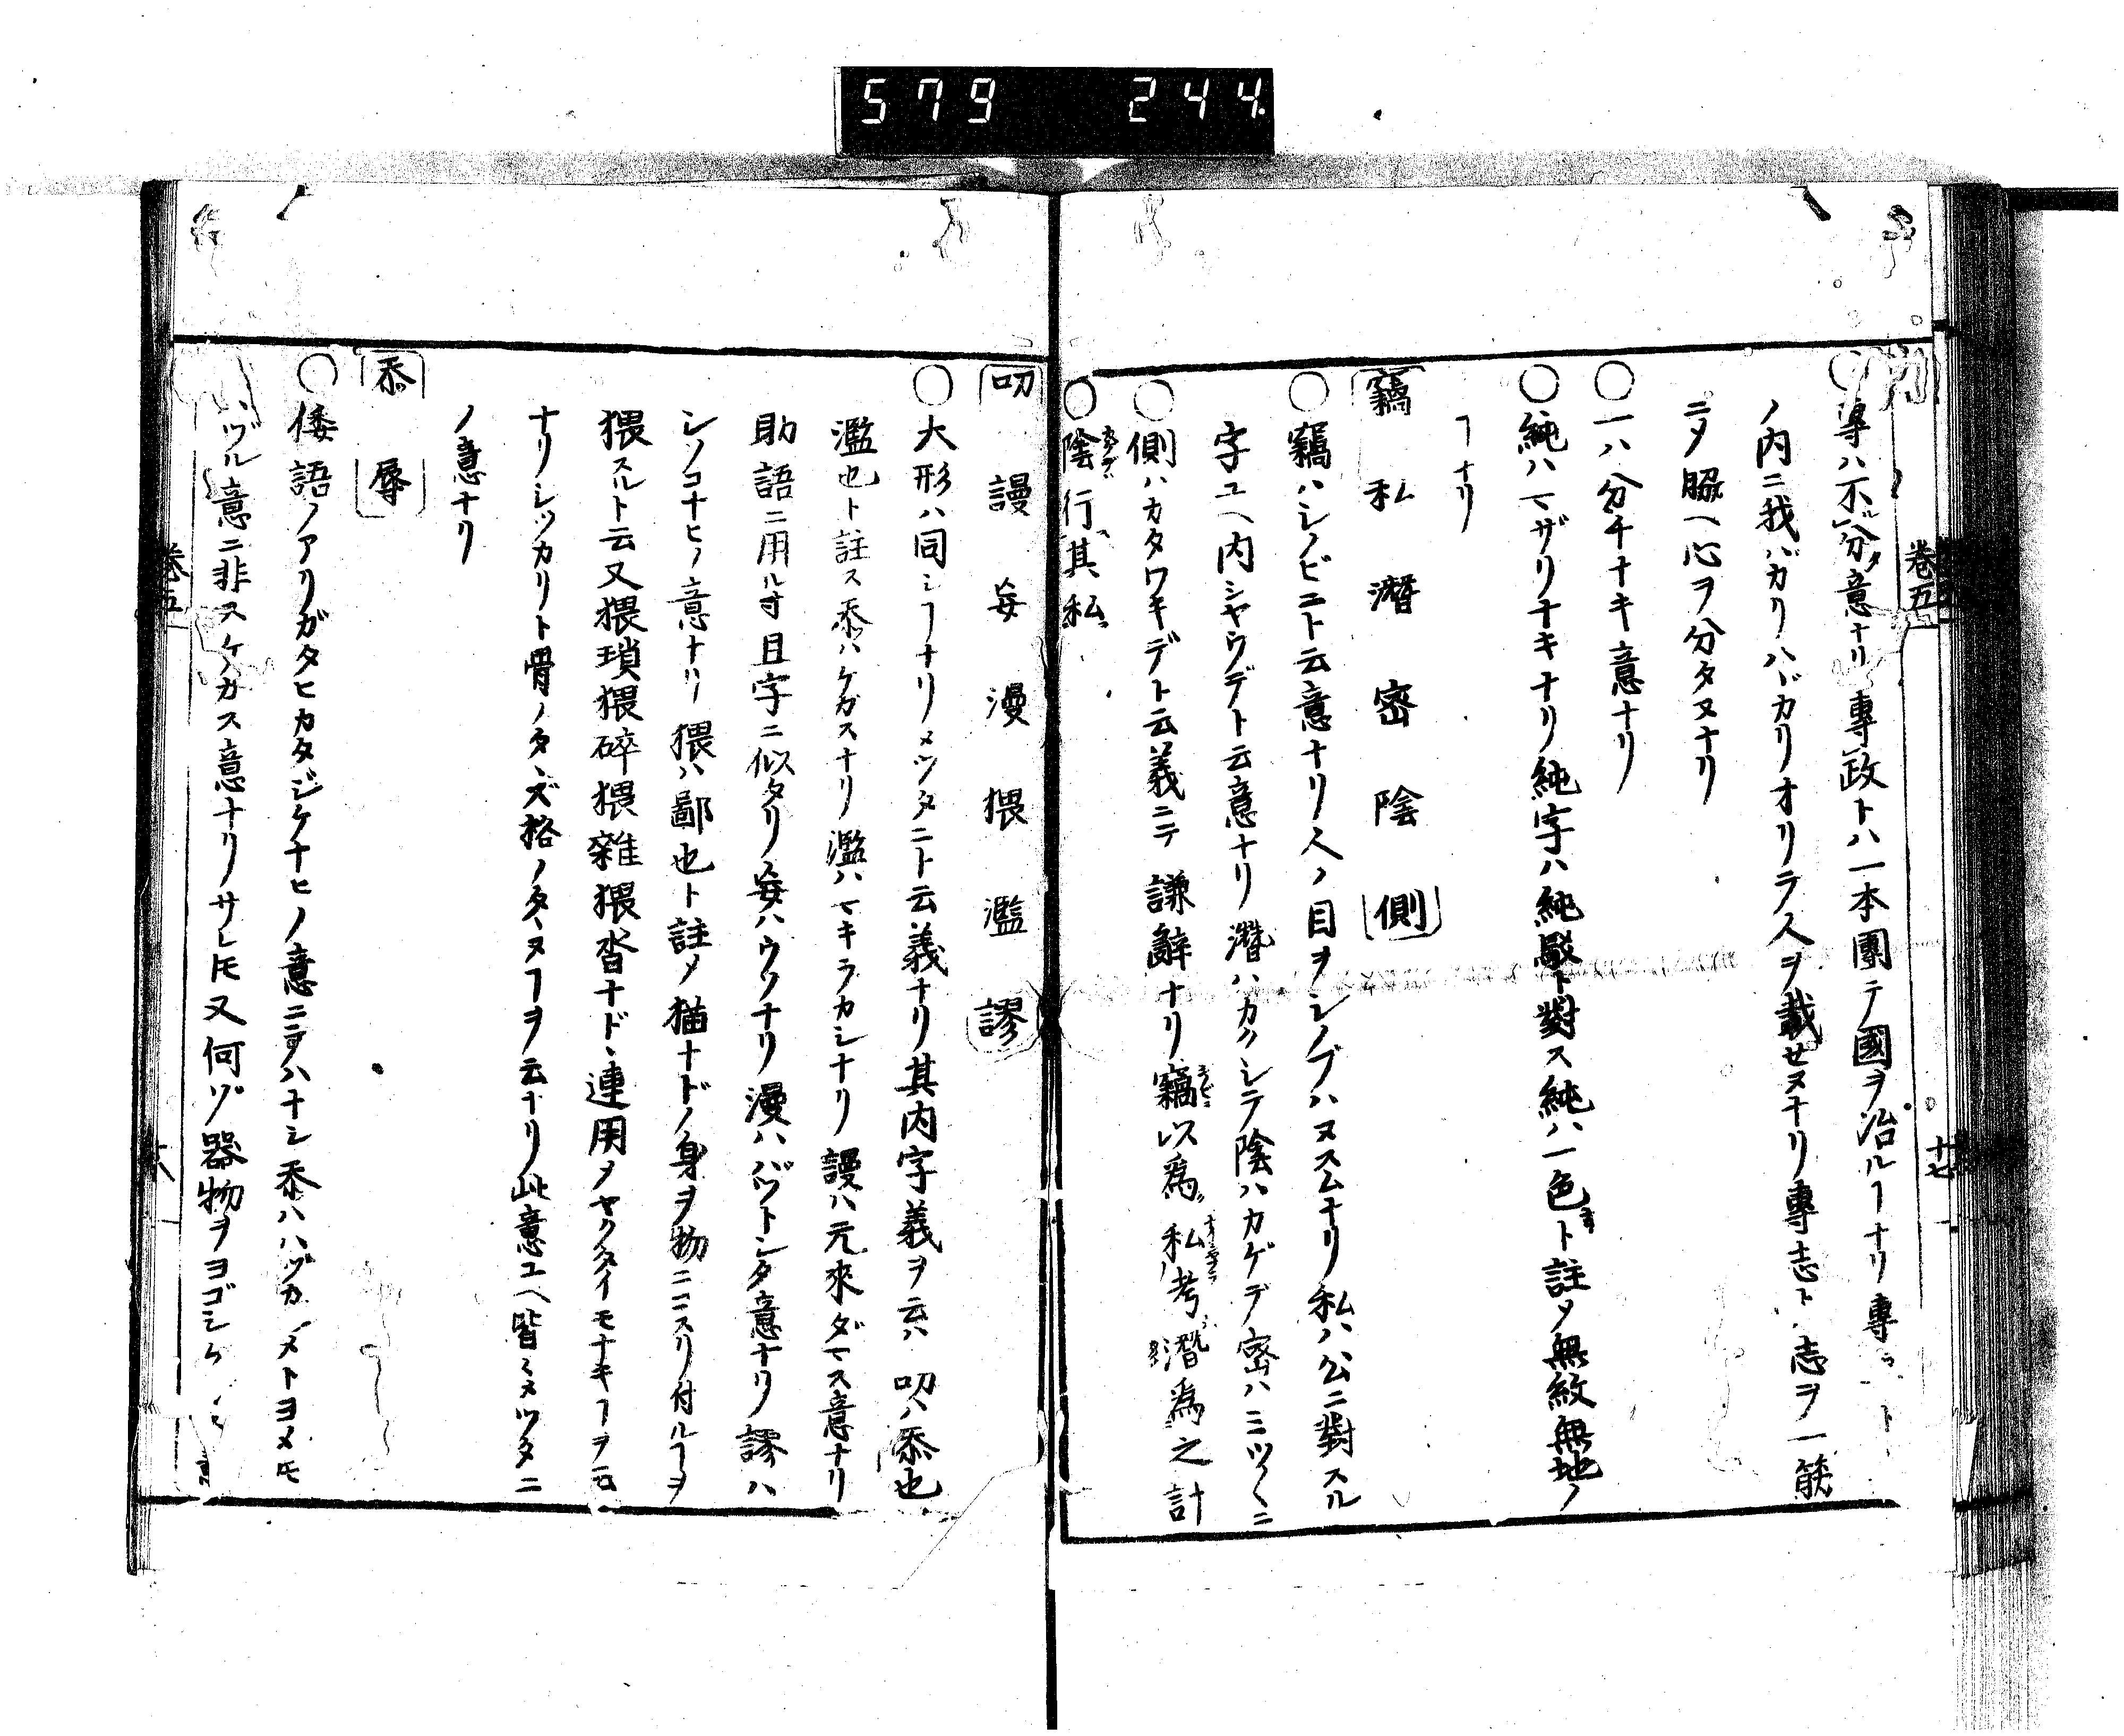 579 244
卷五 十七
○專ハ不分意ナリ專政トハ一本團テ國ヲ治ルヿナリ專
ノ内ニ我バカリハバカリオリテ人ヲ載セヌナリ專志ト志ヲ一筋
ニシテ脇ヘ心ヲ分タヌナリ
○一ハ分チナキ意ナリ
○純ハマザリナキナリ純字ハ純駁ト對ス純ハ一色ト註シテ無紋無地ノ
ヿナリ
竊私潛密陰側
○竊ハシノビニト云意ナリ人ノ目ヲシノブハヌスムナリ私ハ公ニ對スル
字ユヘ内シヤウデト云意ナリ潛ハカクシテ陰ハカゲデ密ハミツ〱ニ
○側ハカタワキデト云義ニテ謙辭ナリ竊以爲私考潛爲之計
○陰行其私
叨謾妄漫猥濫謬
○大形ハ同シヿナリメツタニト云義ナリ其内字義ヲ云ハ叨ハ忝也
濫也ト註ス忝ハケガスナリ濫ハマキラカシナリ謾ハ元來ダマス意ナリ
助語ニ用ル寸且字ニ似タリ妄ハウソナリ漫ハバツトシタ意ナリ謬ハ
シソコナヒノ意ナリ猥ハ鄙也ト註シテ猫ナドノ身ヲ物ニニスリ付ルヿヲ
猥スルト云又猥瑣猥碎猥雜猥沓ナド連用シテヤクタイモナキヿヲ云
ナリシツカリト骨ノタヽズ格ノタヽヌヿヲ云ナリ此意ユヘ皆ミメツタニ
ノ意ナリ
忝辱
○倭語ノアリガタヒカタジケナヒノ意ニテハナシ忝ハハヅカシメトヨメ𪜈
ハヅル意ニ非スケガス意ナリサレ𪜈又何ゾ器物ヲヨゴシケ
卷五